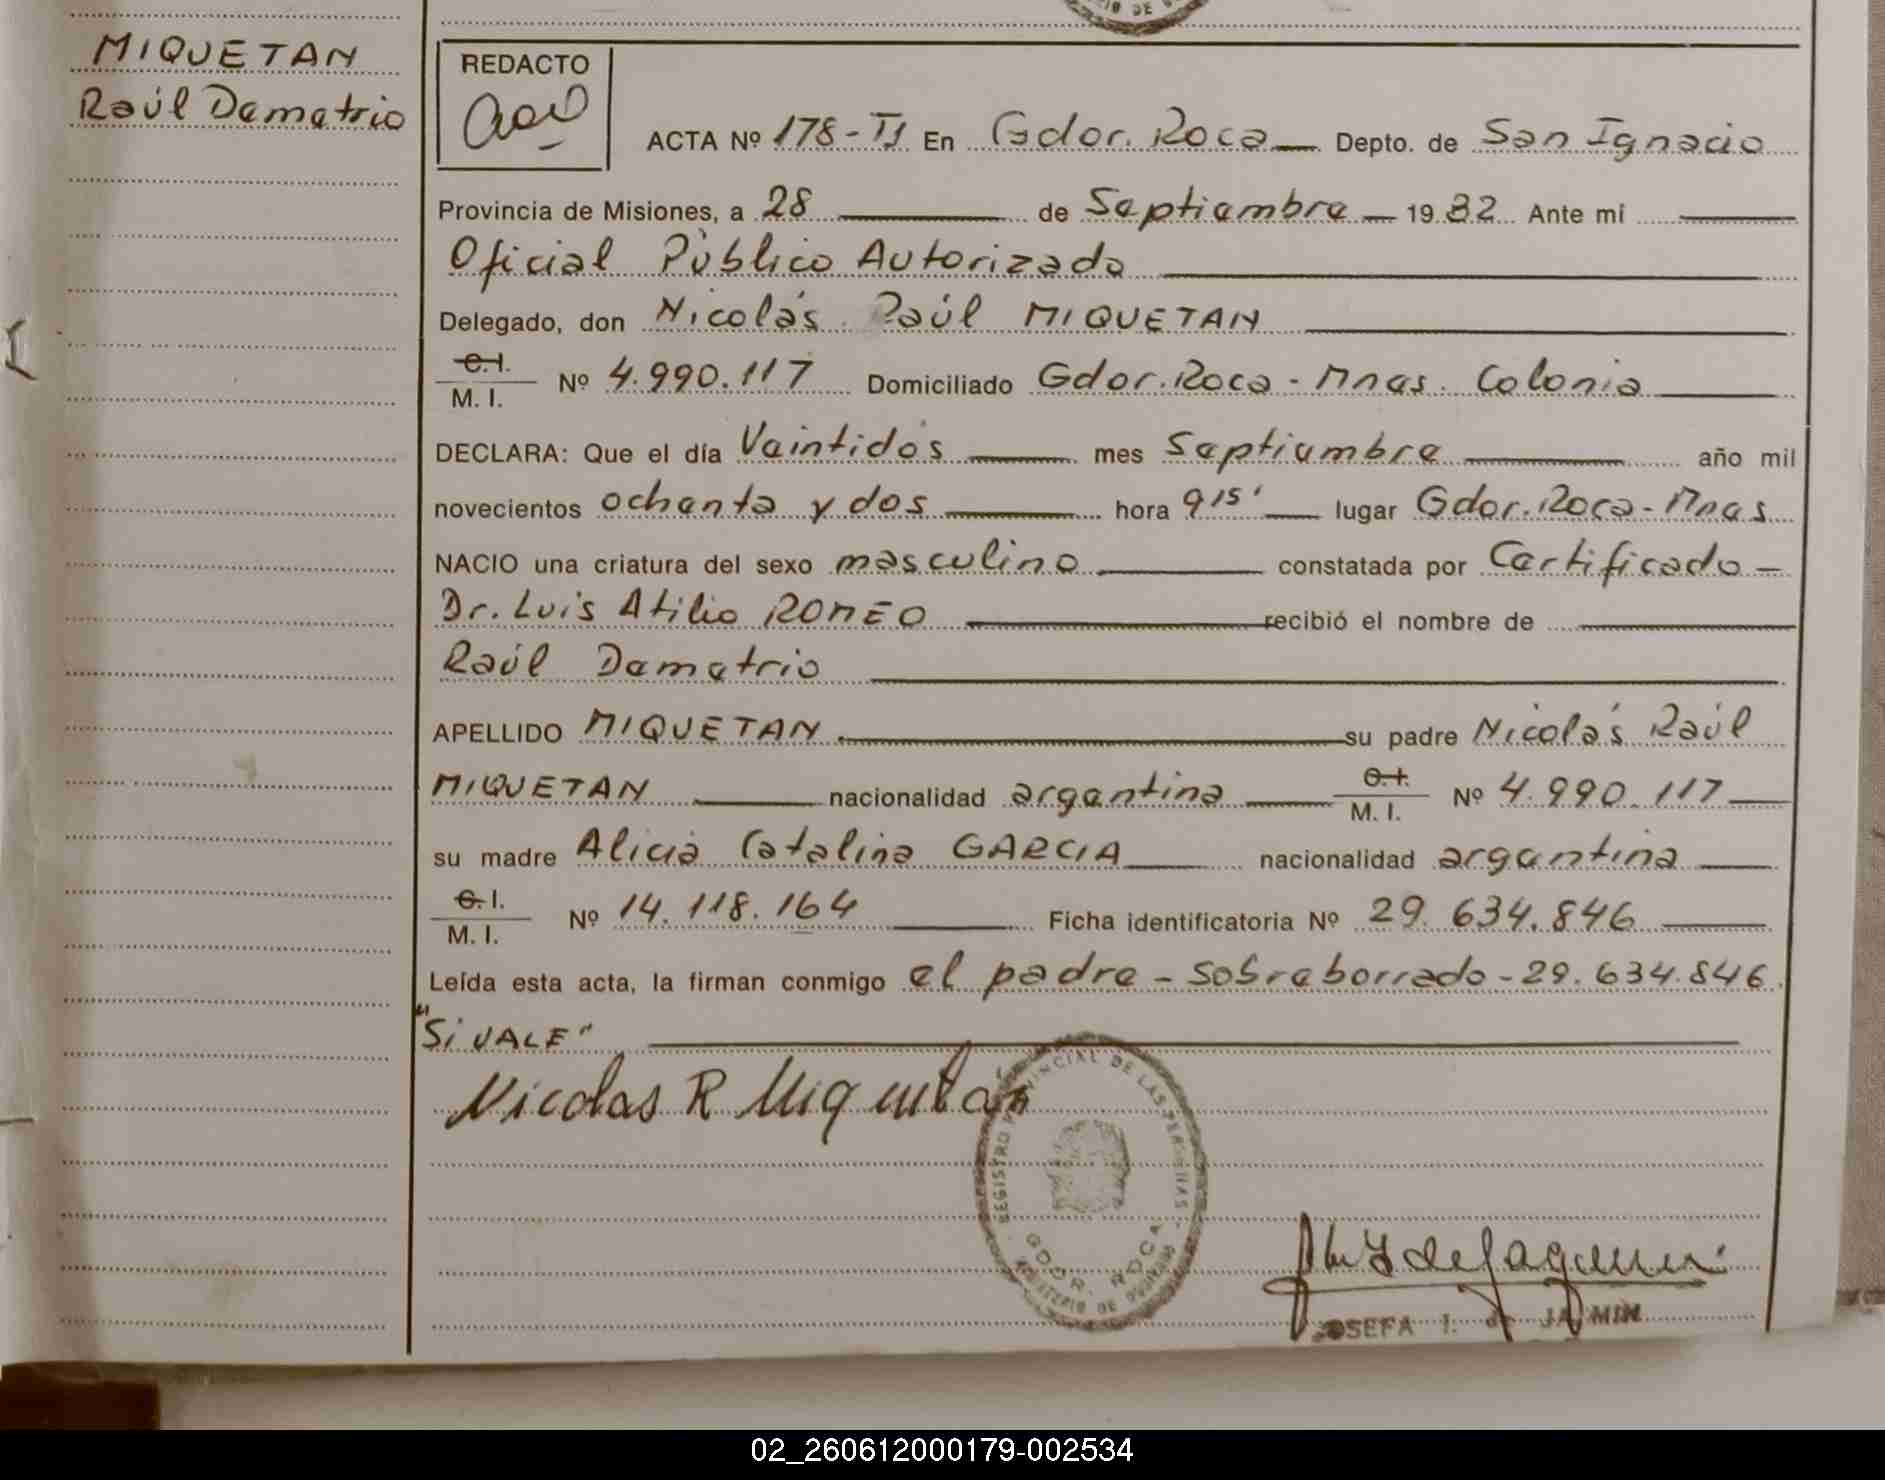 MIQUETAN
Raúl Demetrio
REDACTO
ACTA Nº 178-TJ En Gdor. Roca Depto. de San Ignacio
Provincia de Misiones, a 28 de Septiembre 1982 Ante mi
Oficial Público Autorizado
Delegado, don Nicolás Raúl MIQUETAN
C.I.
M. I. Nº 4.990.117 Domiciliado Gdor. Roca - Mnes. Colonia
DECLARA: Que el día Veintidós mes Septiembre año mil
novecientos ochenta y dos hora 9 15' lugar Gdor. Roca - Mnes
NACIO una criatura del sexo masculino constatada por Certificado -
Dr. Luis Atilio ROMEO recibió el nombre de
Raúl Demetrio
APELLIDO MIQUETAN su padre Nicolás Raúl
MIQUETAN nacionalidad argentina C.I. M. I. Nº 4.990.117
su madre Alicia Catalina GARCIA nacionalidad argentina
C.I.
M. I. Nº 14.118.164 Ficha identificatoria Nº 29.634.846
Leída esta acta, la firman conmigo el padre - Sobreborrado - 29.634.846
"Si VALE"
Nicolas R Miquetán
REGISTRO PROVINCIAL DE LAS PERSONAS
GDOR. ROCA
MINISTERIO DE GOBIERNO
JOSEFA I. de
02_260612000179-002534